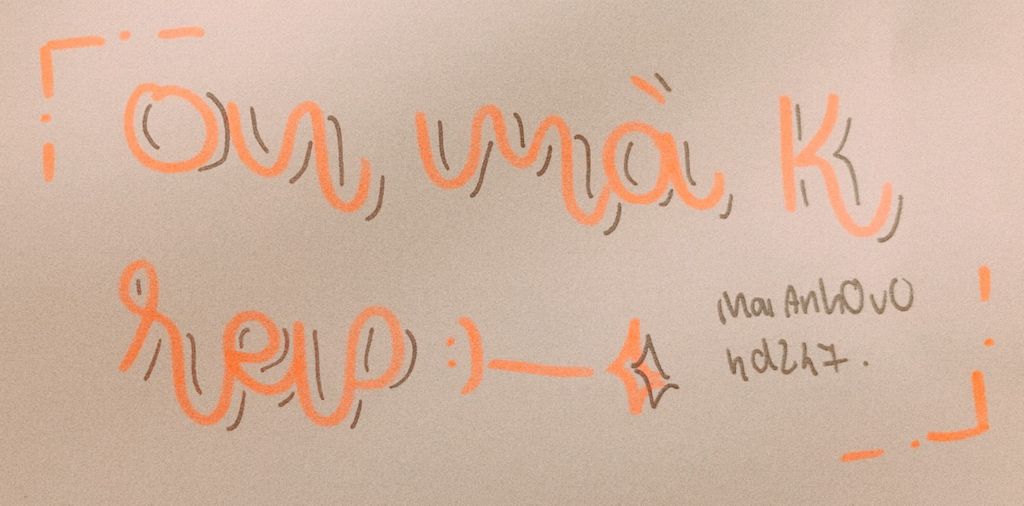 On mà K
rep :)
MaiAnhOvO
hd247.